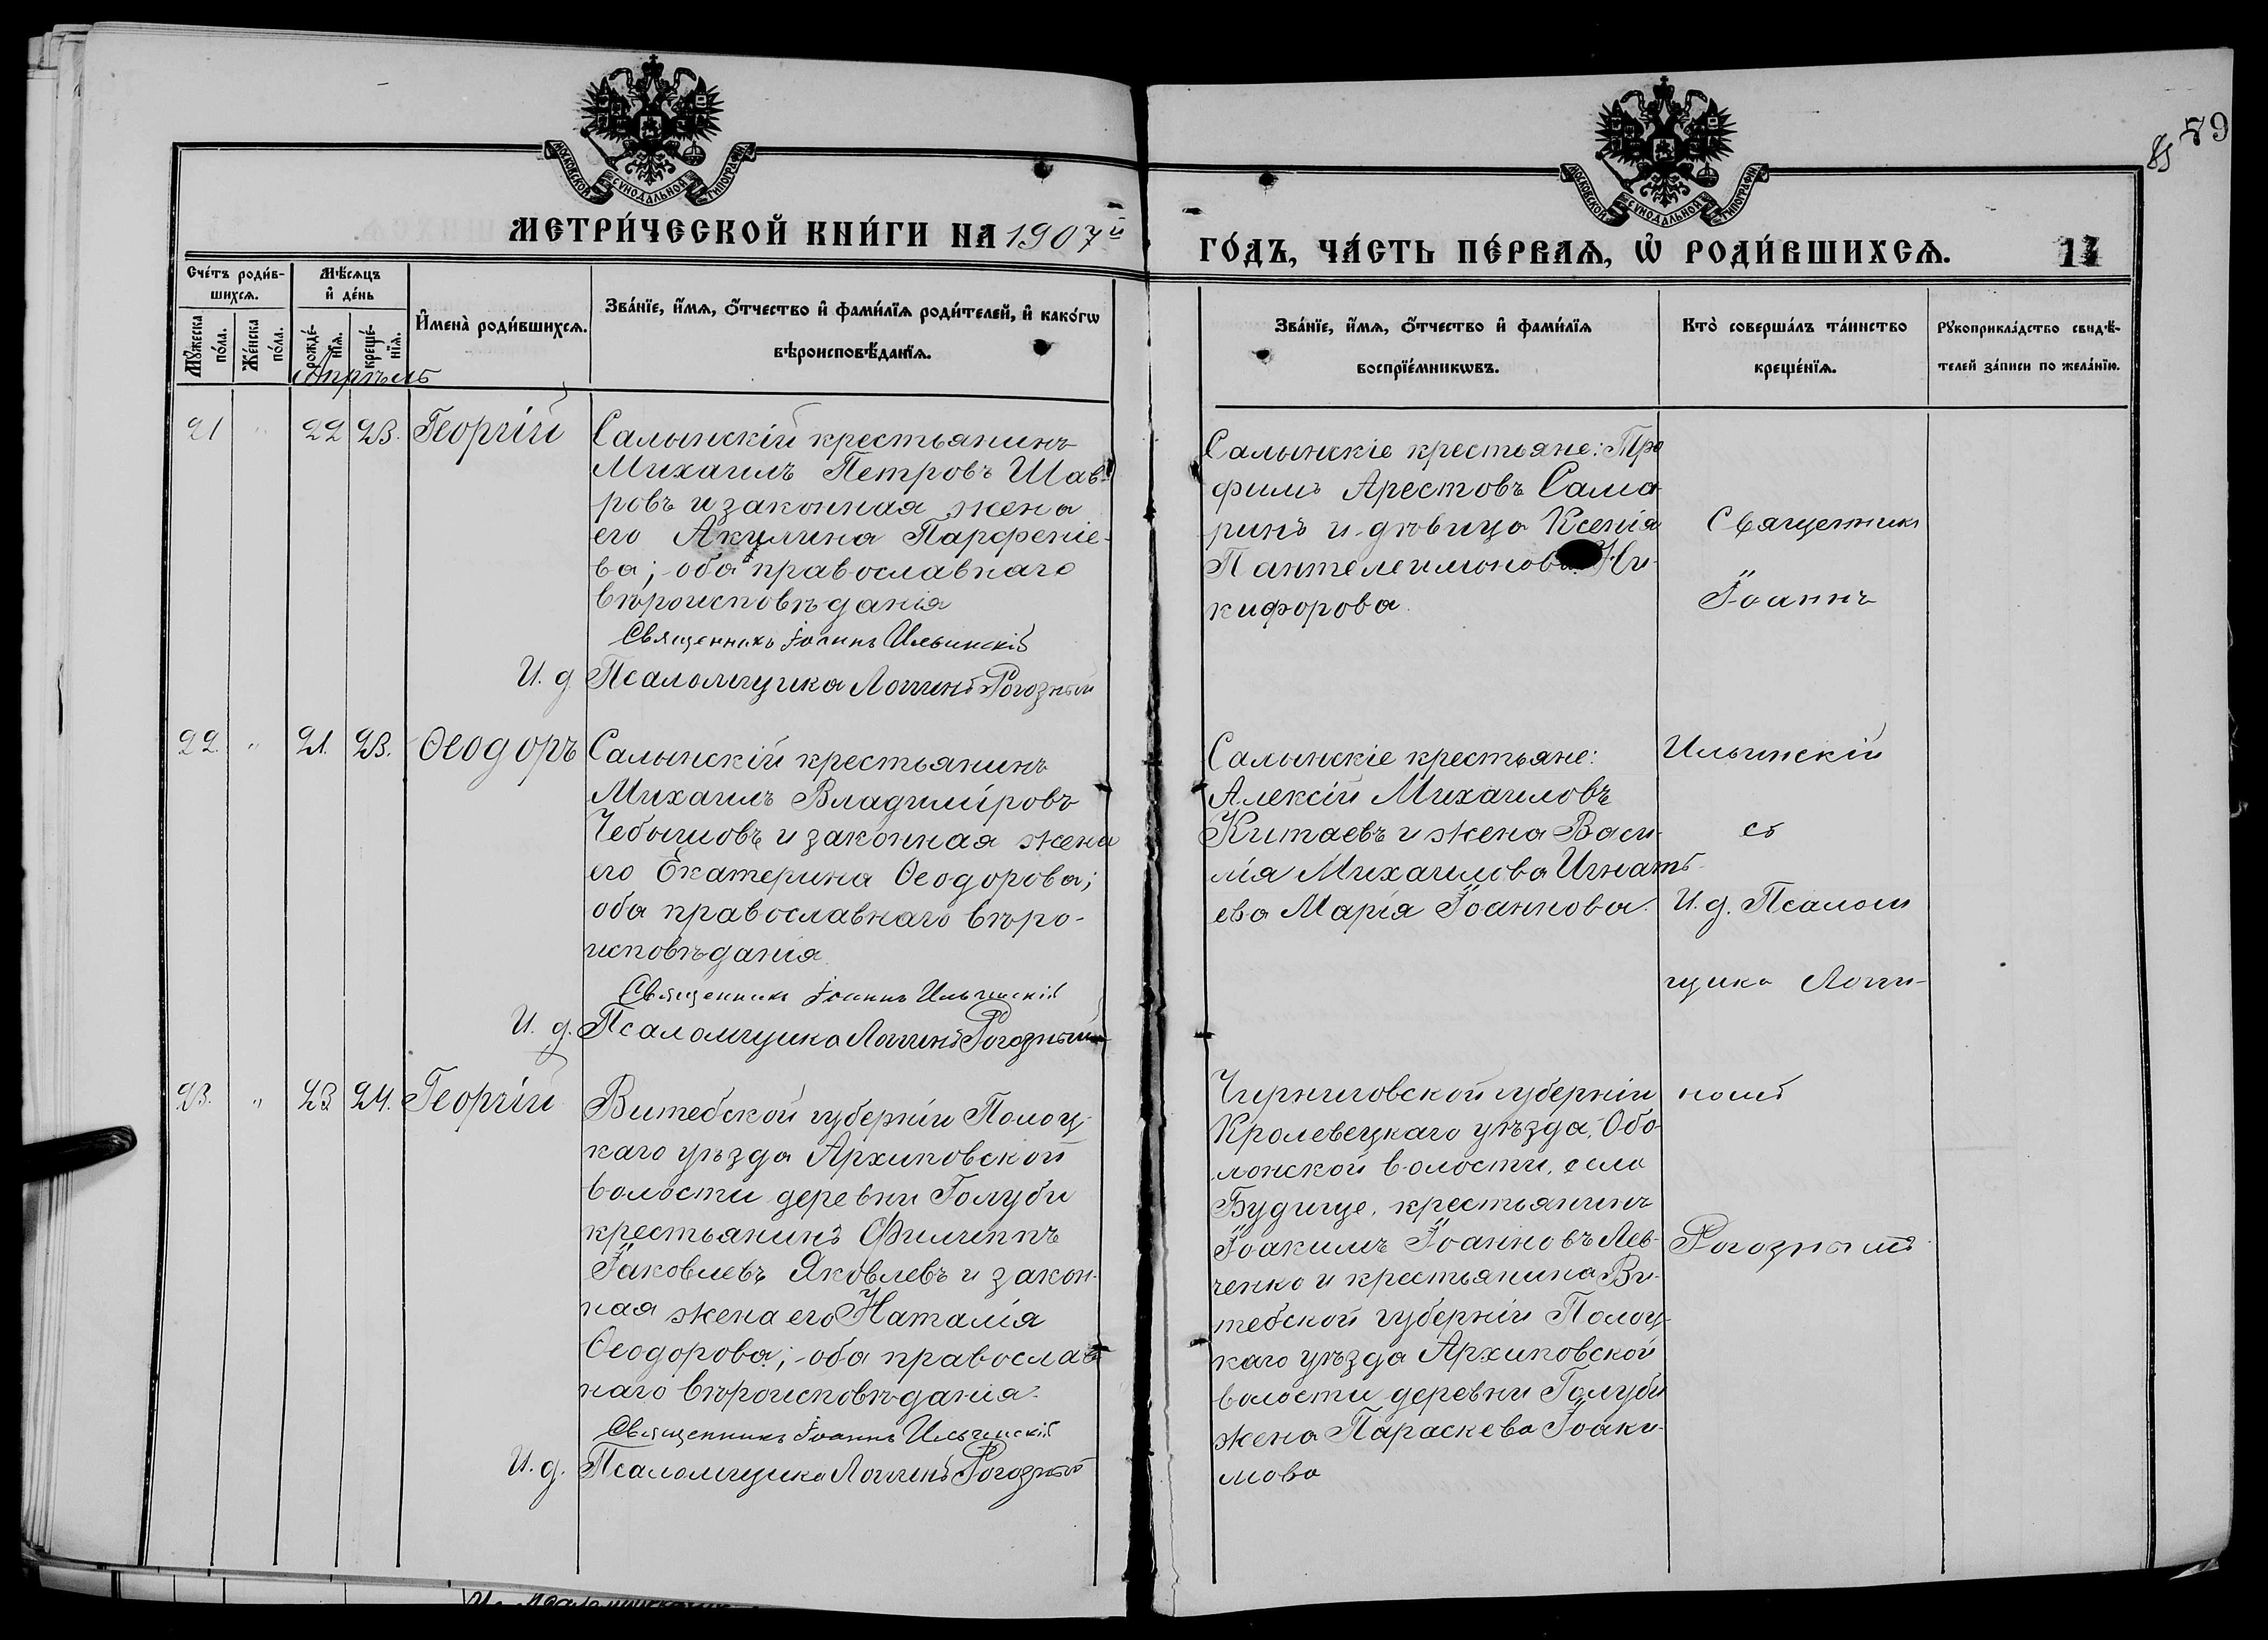 85 79
МОСКОВСКОЙ СѴНОДАЛЬНОЙ ТИПОГРАФІИ
МОСКОВСКОЙ СѴНОДАЛЬНОЙ ТИПОГРАФІИ
МЕТРИ́ЧЕСКОЙ КНИ́ГИ НА 1907й
ГО́ДЪ, ЧА́СТЬ ПЕ́РВАѦ, Ѡ҆ РОДИ́ВШИХСѦ.
Сче́тъ роди́в-
шихсѧ.
Мꙋ́жеска
по́ла.
Же́нска
по́ла.
Мѣ́сѧцъ
и҆ де́нь
рожде́-
нїѧ.
креще́-
нїѧ.
И҆мена̀ роди́вшихсѧ.
Зва́нїе, и҆́мѧ, ѻ҆́тчество и҆ фами́лїѧ роди́телей, и҆ како́гѡ
вѣроисповѣ́данїѧ.
Зва́нїе, и҆́мѧ, ѻ҆́тчество и҆ фами́лїѧ
воспрїе́мникѡвъ.
Кто̀ соверша́лъ та́инство
креще́нїѧ.
Рꙋкоприкла́дство свидѣ́-
телей за́писи по жела́нїю.
Апрѣль
21 " 22 23. Георгій
Салынскій крестьянинъ
Михаилъ Петровъ Шав-
ровъ и законная жена
его Акулина Парфеніе-
ва; оба православнаго
вѣроисповѣданія
Священникъ Іоаннъ Ильинскій
И. д. Псаломщика Логгинъ Рогозный
Салынскіе крестьяне: Тро
фимъ Арестовъ Сама-
ринъ и дѣвица Ксенія
Пантелеимонова Ни-
кифорова.
Священник
Іоаннъ
22. " 21. 23. Ѳеодоръ
Салынскій крестьянинъ
Михаилъ Владиміровъ
Чебышовъ и законная жена
его Екатерина Ѳеодорова;
оба православнаго вѣро-
исповѣданія.
Священникъ Іоаннъ Ильинскій
И. д. Псаломщика Логгинъ Рогозный
Салынскіе крестьяне:
Алексій Михаиловъ
Китаевъ и жена Васи-
лія Михаилова Игнать-
ева Марія Іоаннова.
Ильинскій
съ
И. д. Псалом
щика Логги-
23. " 23 24. Георгій
Витебской губерніи Полоц-
каго уѣзда Архиповской
волости деревни Голуби
крестьянинъ Филиппъ
Іаковлевъ Яковлевъ и закон-
ная жена его Наталія
Ѳеодорова; оба православ
наго вѣроисповѣданія.
Священникъ Іоаннъ Ильинскій
И. д. Псаломщика Логгинъ Рогозный
Черниговской губерніи
Кролевецкаго уѣзда, Обо-
лонской волости, села
Будище, крестьянинъ
Іоакимъ Іоанновъ Лев-
ченко и крестьянина Ви-
тебской губерніи Полоц-
каго уѣзда Архиповской
волости деревни Голуби
жена Параскева Іоаки-
мова
номъ
Рогознымъ